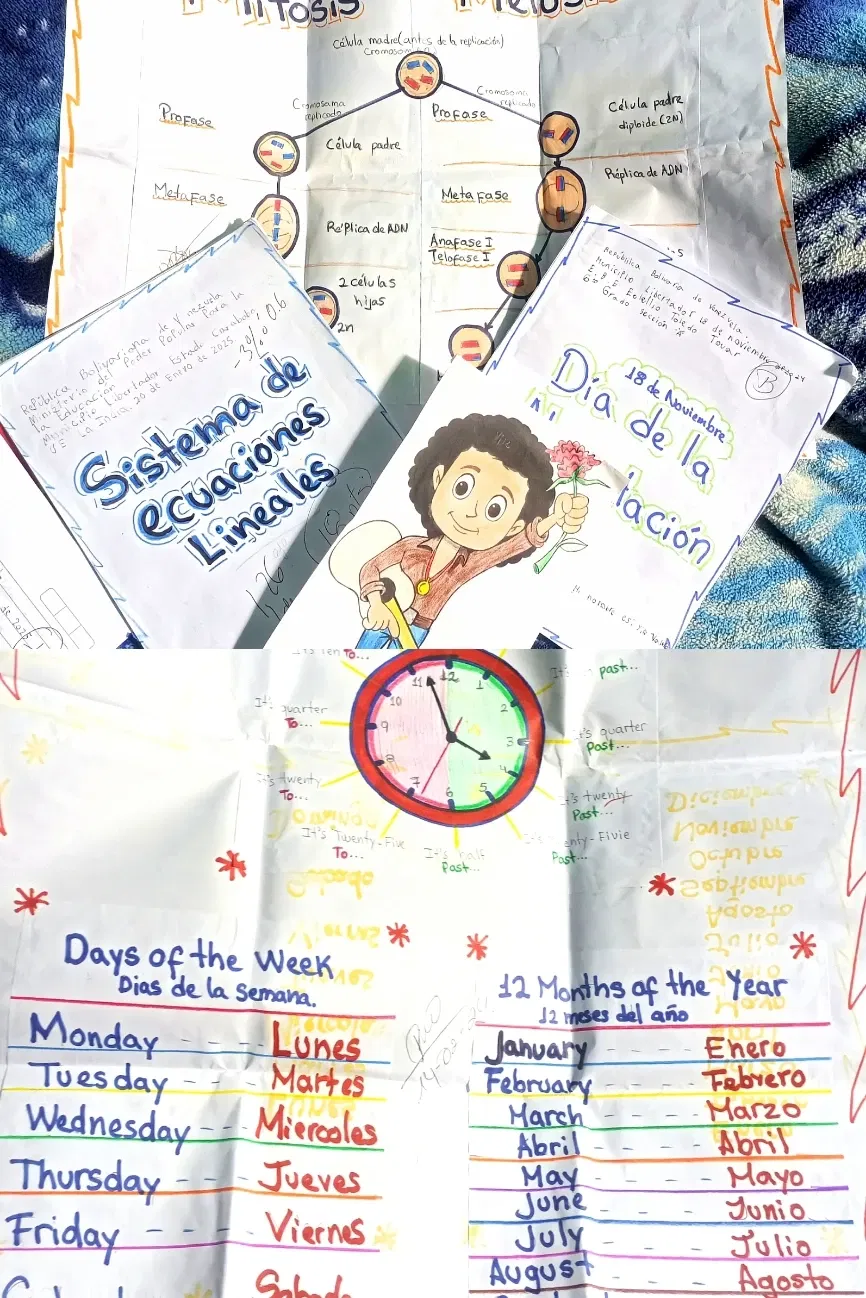 Mitosis
Meiosis
Célula madre (antes de la replicación)
Cromosoma
replicado
Cromosoma
replicado
Profase
Célula padre
Profase
Célula padre
diploide (2N)
MetaFase
Réplica de ADN
MetaFase
Réplica de ADN
Anafase I
Telofase I
2 células
hijas
2n
República Bolivariana de Venezuela
Ministerio de Poder Popular Para la
la Educación
Municipio Libertador Estado Carabobo
20 de Enero de 2025
Sistema de
ecuaciones
Lineales
República Bolivariana de Venezuela.
Municipio Libertador 18 de noviembre
Toledo Tovar
6to Grado sección
B
18 de Noviembre
Día de la
tación
Mi nombre es:
It's Ten To...
past...
It's quarter
To...
It's quarter
Past...
It's twenty
To...
It's twenty
Past...
It's Twenty-Five
To...
It's half
Past...
enty-Fivie
Past...
11 12 1
10 2
9 3
8 4
7 6 5
Diciembre
Noviembre
Octubre
Septiembre
Agosto
Julio
Days of the Week
Dias de la semana.
Monday - - - Lunes
Tuesday - - - Martes
Wednesday - - - Miercoles
Thursday - - - Jueves
Friday - - - - Viernes
Sabado
12 Months of the Year
12 meses del año
January - - - Enero
February - - - Febrero
March - - - Marzo
Abril - - - - Abril
May - - - Mayo
June - - - Junio
July - - - Julio
August - - - Agosto